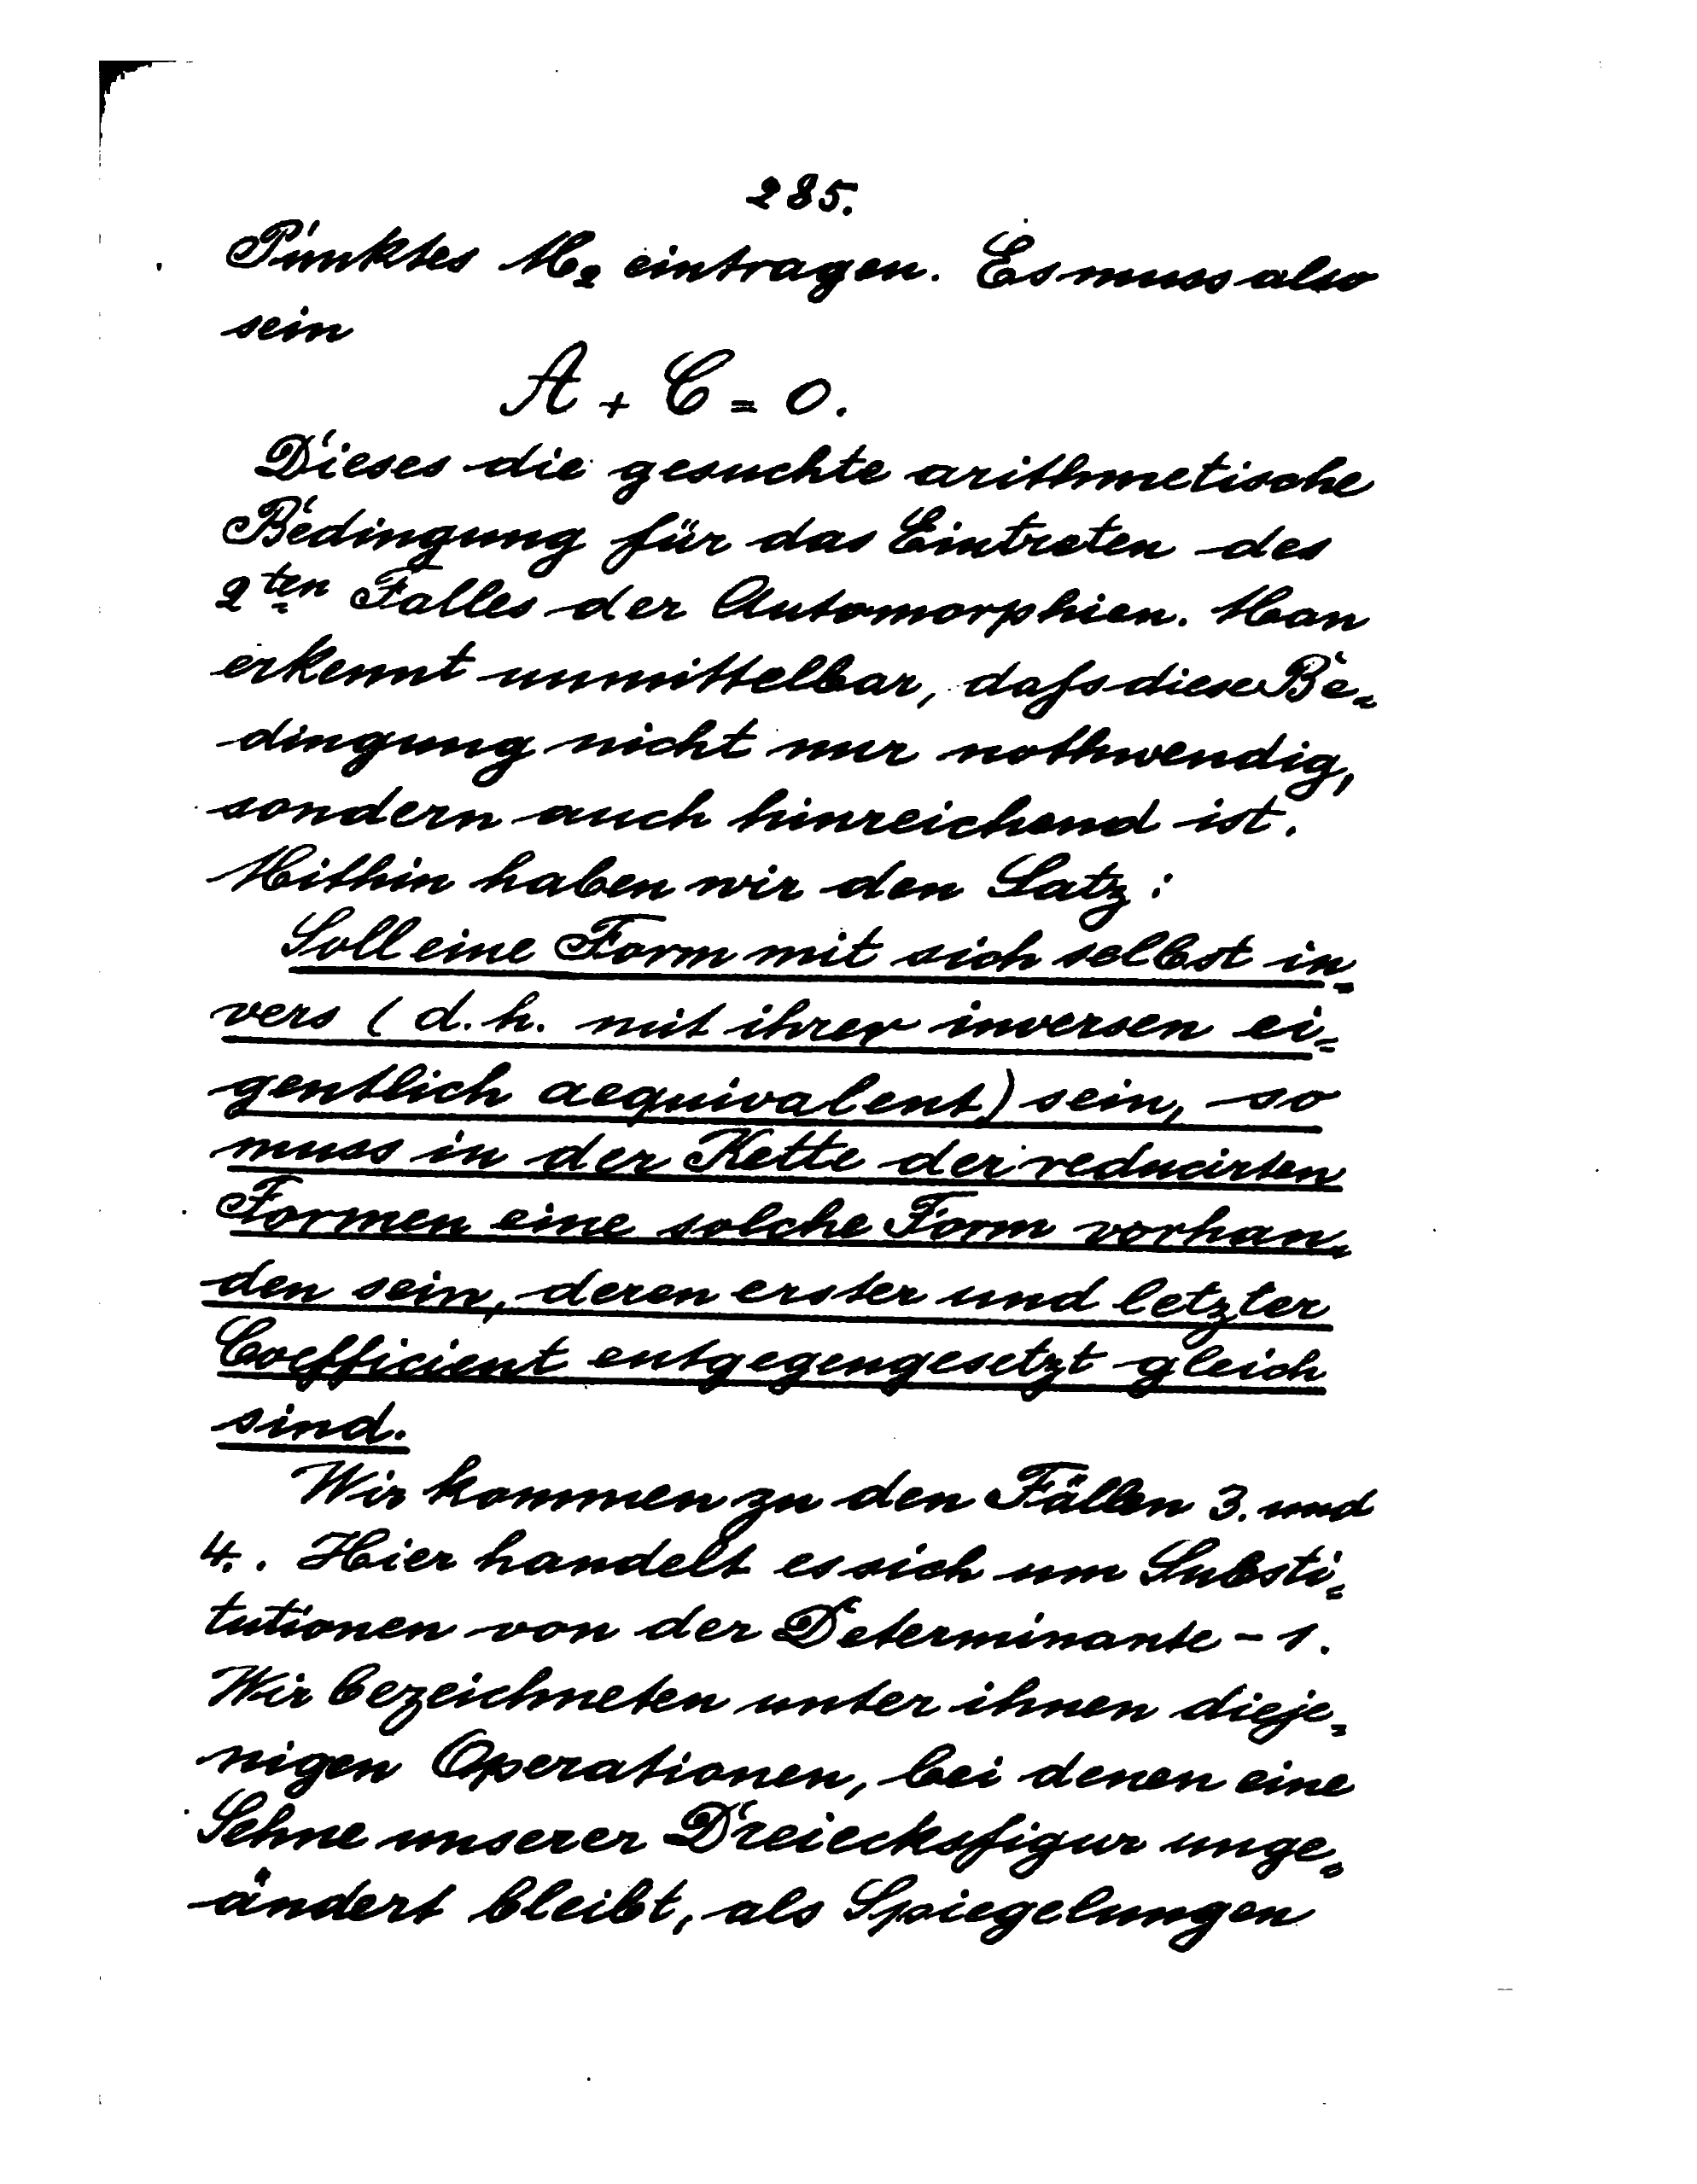 285.
Punktes M₂ eintragen. Es muss also
sein
A + C = 0.
Dieses die gesuchte arithmetische
Bedingung für das Eintreten des
2ten Falles der Automorphien. Man
erkennt unmittelbar, dafs diese Be-
dingung nicht nur nothwendig,
sondern auch hinreichend ist.
Mithin haben wir den Satz:
Soll eine Form mit sich selbst in-
vers (d. h. mit ihrer inversen ei-
gentlich aequivalent) sein, so
muss in der Kette der reducirten
Formen eine solche Form vorhan-
den sein, deren erster und letzter
Coefficient entgegengesetzt gleich
sind.
Wir kommen zu den Fällen 3. und
4.. Hier handelt es sich um Substi-
tutionen von der Determinante - 1.
Wir bezeichneten unter ihnen dieje-
nigen Operationen, bei denen eine
Sehne unserer Dreiecksfigur unge-
ändert bleibt, als Spiegelungen